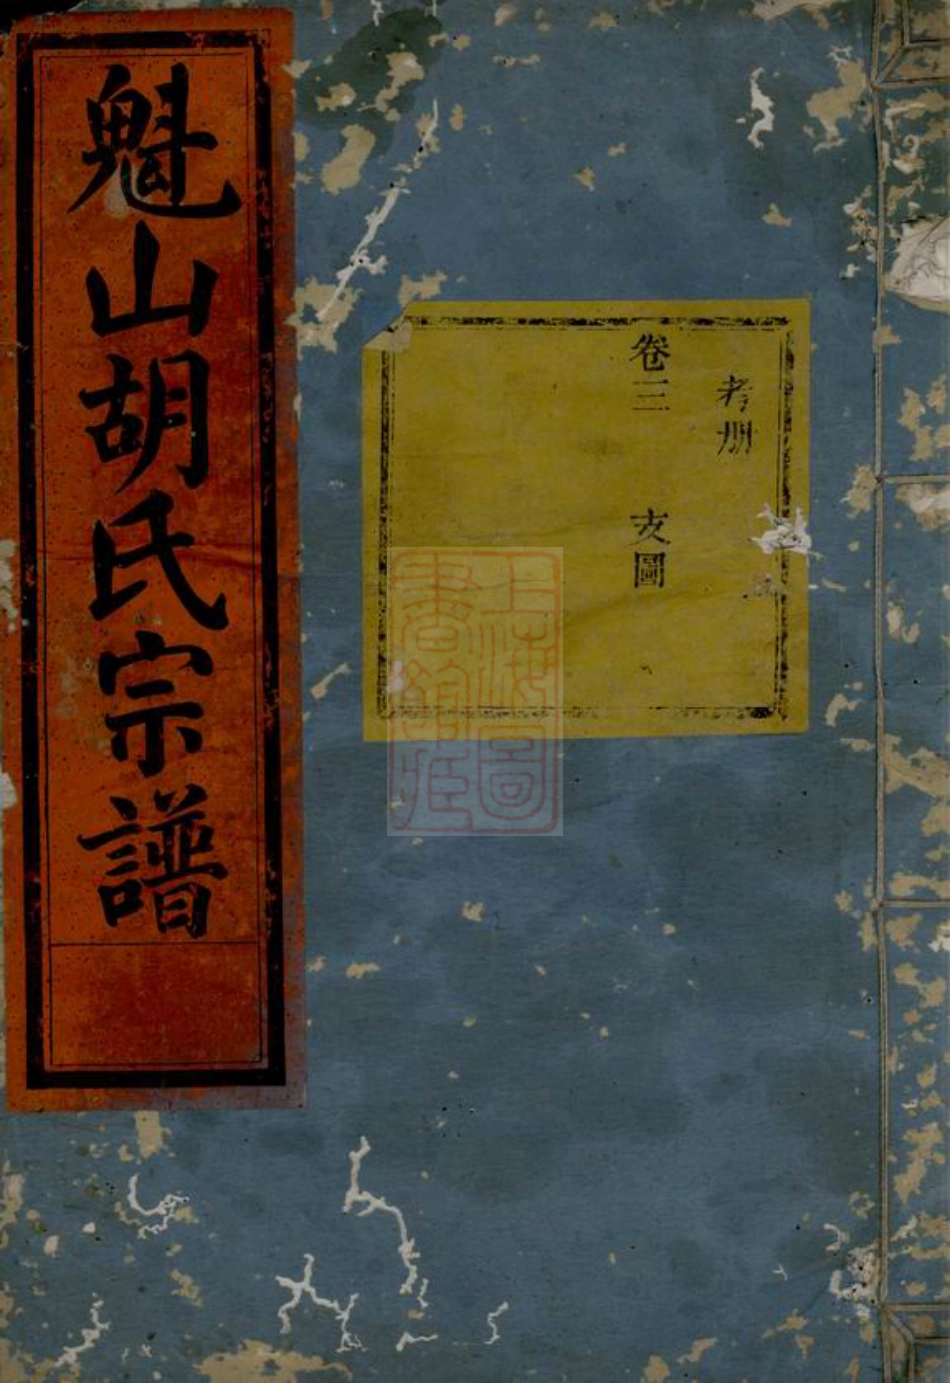 魁山胡氏宗譜
卷三 支圖
上海圖書館藏